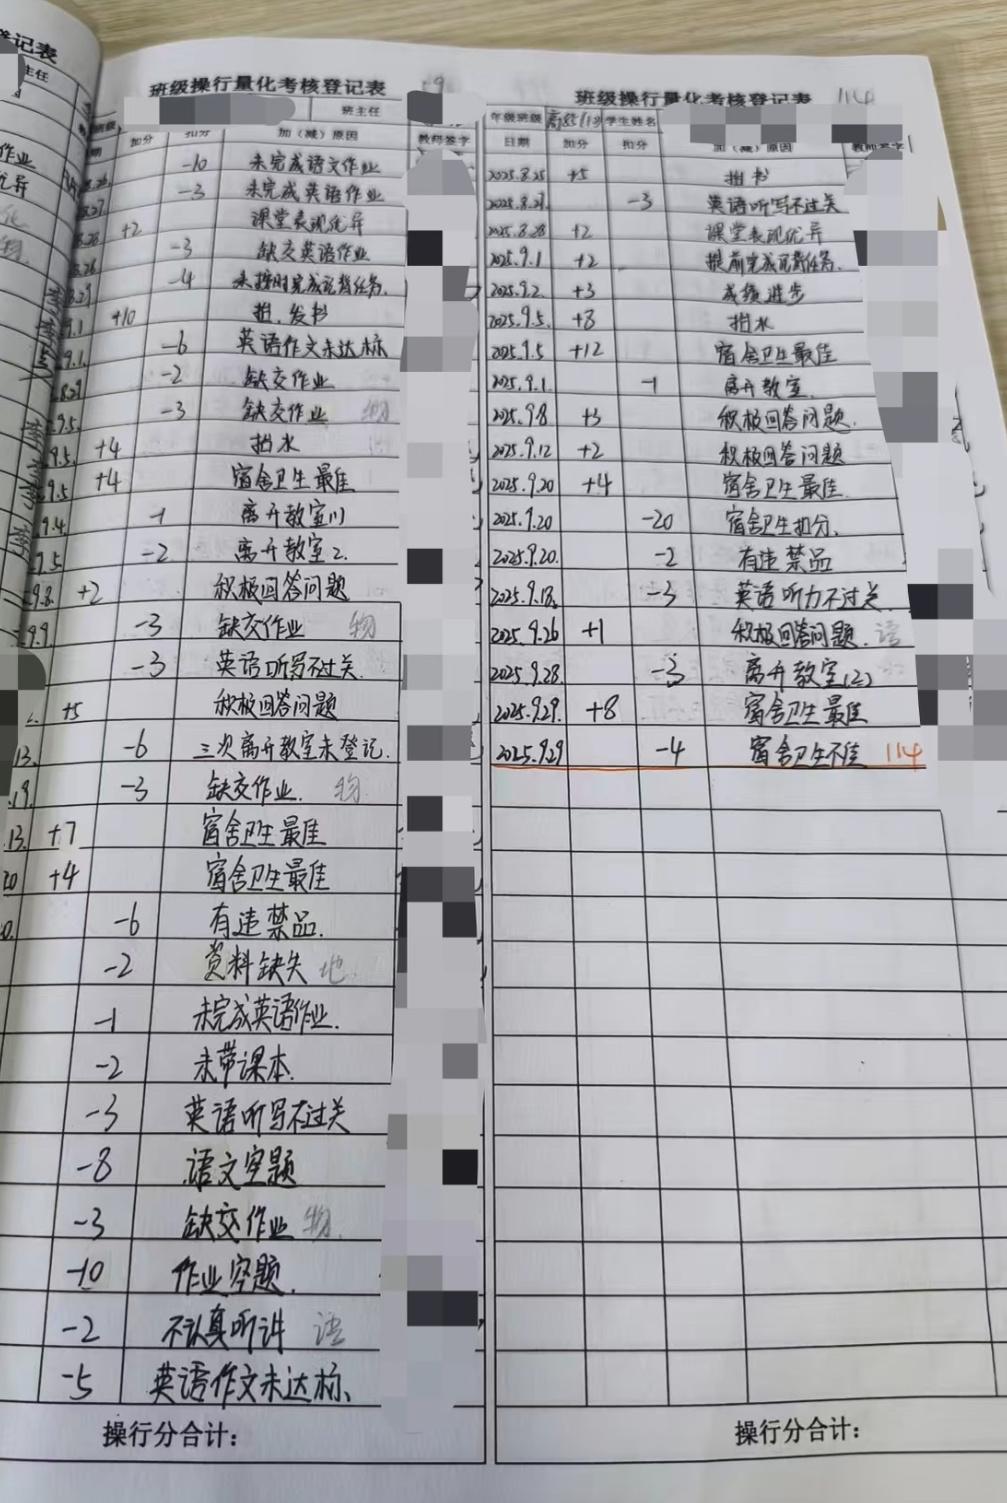 登记表
主任
作业
优异
班级操行量化考核登记表
班级
班主任
加分 扣分 加（减）原因 教师签字
-10 未完成语文作业
-3 未完成英语作业
+2 课堂表现优异
-3 缺交英语作业
-4 未按时完成记背任务.
9.1 +10 担,发书
9.1. -6 英语作文未达标
8.29 -2 缺交作业
9.5. -3 缺交作业 物
9.5. +4 担水
9.5 +4 宿舍卫生最佳
9.4. -1 离开教室
9.5 -2 离开教室2.
9.8. +2 积极回答问题
9.9. -3 缺交作业 物
-3 英语听写不过关.
+5 积极回答问题
13. -6 三次离开教室未登记.
19. -3 缺交作业. 物
13. +7 宿舍卫生最佳
20 +4 宿舍卫生最佳
-6 有违禁品.
-2 资料缺失 地
-1 未完成英语作业.
-2 未带课本.
-3 英语听写不过关
-8 语文空题
-3 缺交作业 物.
-10 作业空题.
-2 不认真听讲 语
-5 英语作文未达标、
操行分合计：
班级操行量化考核登记表 114
年级班级 学生姓名
日期 加分 扣分 加（减）原因 教师签字
2025.8.25 +5 担书
2025.8.27. -3 英语听写不过关
2025.8.28 +2 课堂表现优异
2025.9.1 +2 提前完成记背任务.
2025.9.2. +3 成绩进步
2025.9.5. +8 担水
2025.9.5 +12 宿舍卫生最佳
2025.9.1 -1 离开教室.
2025.9.8 +3 积极回答问题.
2025.9.12 +2 积极回答问题
2025.9.20 +4 宿舍卫生最佳.
2025.9.20 -20 宿舍卫生扣分.
2025.9.20. -2 有违禁品
2025.9.18. -3 英语听力不过关.
2025.9.26 +1 积极回答问题. 语
2025.9.28. -3 离开教室(2)
2025.9.29. +8 宿舍卫生最佳
2025.9.29 -4 宿舍卫生不佳 114
操行分合计：